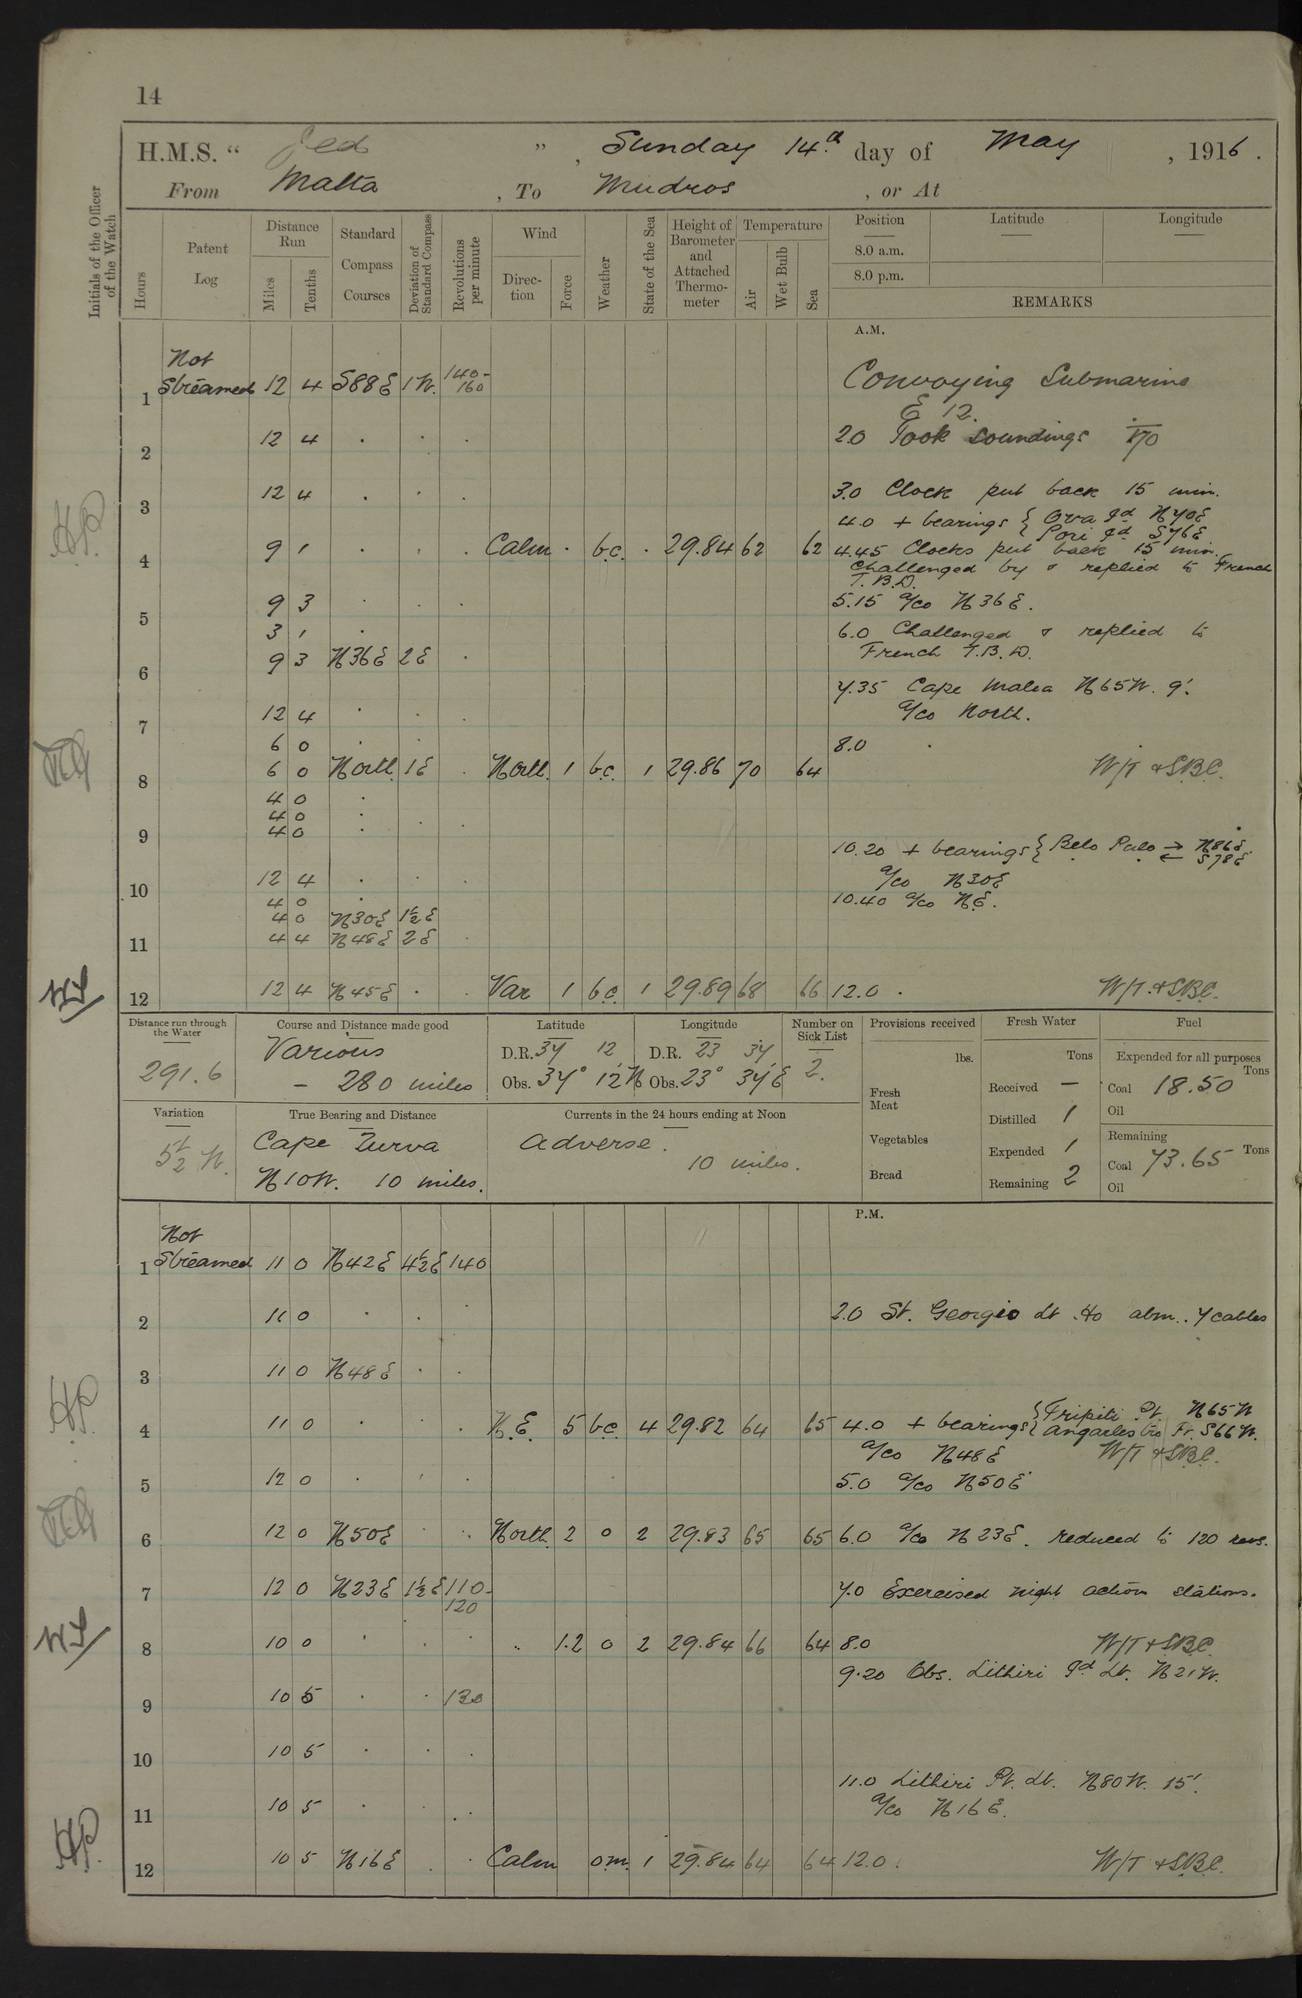 14
H.M.S. “ Jed ” , Sunday 14th day of May , 1916 .
From Malta , To Mudros , or At
Initials of the Officer of the Watch
Hours
Patent Log
Distance Run
Miles
Tenths
Standard Compass Courses
Deviation of Standard Compass
Revolutions per minute
Wind
Direction
Force
Weather
State of the Sea
Height of Barometer and Attached Thermometer
Temperature
Air
Wet Bulb
Sea
Position
Latitude
Longitude
8.0 a.m.
8.0 p.m.
REMARKS
A.M.
Not
1 Streamed 12 4 S88E 1W. 140-160 Convoying Submarine
E 12.
2 12 4 . . . 2.0 Took soundings 170
3 12 4 . . . 3.0 Clock put back 15 min.
4.0 + bearings { Ova Id N70E
Pori Id S76E
4 9 1 . . . Calm . b.c. . 29.84 62 62 4.45 Clocks put back 15 min.
Challenged by & replied to French
T.B.D.
5 9 3 . . . 5.15 a/co N36E.
3 1 . 6.0 Challenged & replied to
6 9 3 N36E 2E . French T.B.D.
7.35 Cape Malea N65W. 9'.
7 12 4 . . . a/co North.
6 0 . . 8.0 .
8 6 0 North 1E . North 1 b.c. 1 29.86 70 64 W/T & S.B.C.
4 0 .
4 0 .
9 4 0 . . .
10.20 + bearings { Belo Pulo → N86E.
← S78E
10 12 4 . . . a/co N30E
4 0 . 10.40 a/co NE.
4 0 N30E 1½E
11 4 4 N48E 2E .
12 12 4 N45E . . Var 1 b.c. 1 29.89 68 66 12.0 . W/T. & S.B.C.
Distance run through the Water
291.6
Course and Distance made good
Various
– 280 miles
Latitude
D.R. 37 12
Obs. 37° 12'N
Longitude
D.R. 23 37
Obs. 23° 37'E
Number on Sick List
2.
Provisions received
lbs.
Fresh Meat
Vegetables
Bread
Fresh Water
Tons
Received —
Distilled 1
Expended 1
Remaining 2
Fuel
Expended for all purposes
Tons
Coal 18.50
Oil
Remaining
Coal 73.65 Tons
Oil
Variation
5½ W.
True Bearing and Distance
Cape Zurva
N10W. 10 miles.
Currents in the 24 hours ending at Noon
Adverse.
10 miles.
P.M.
Not
1 Streamed 11 0 N42E 4½E 140
2 11 0 . . . 2.0 St. Georgio Lt Ho abm. 7 cables
3 11 0 N48E . .
4 11 0 . . N.E. 5 b.c 4 29.82 64 65 4.0 + bearings { Tripiti Pt. N65W
Fr. S66W.
a/co N48E W/T & S.B.C.
5 12 0 . . . 5.0 a/co N50E
6 12 0 N50E . . North 2 o 2 29.83 65 65 6.0 a/co N23E. reduced to 120 revs.
7 12 0 N23E 1½E 110-120 7.0 Exercised night action stations.
8 10 0 . . . „ 1.2 o 2 29.84 66 64 8.0 W/T & S.B.C.
9.20 Obs. Lithiri Id Lt. N21W.
9 10 5 . . 130
10 10 5 . . .
11.0 Lithiri Pt. Lt. N80W. 15'.
11 10 5 . . a/co N16E.
12 10 5 N16E . . Calm o.m. 1 29.84 64 64 12.0. W/T & S.B.C.